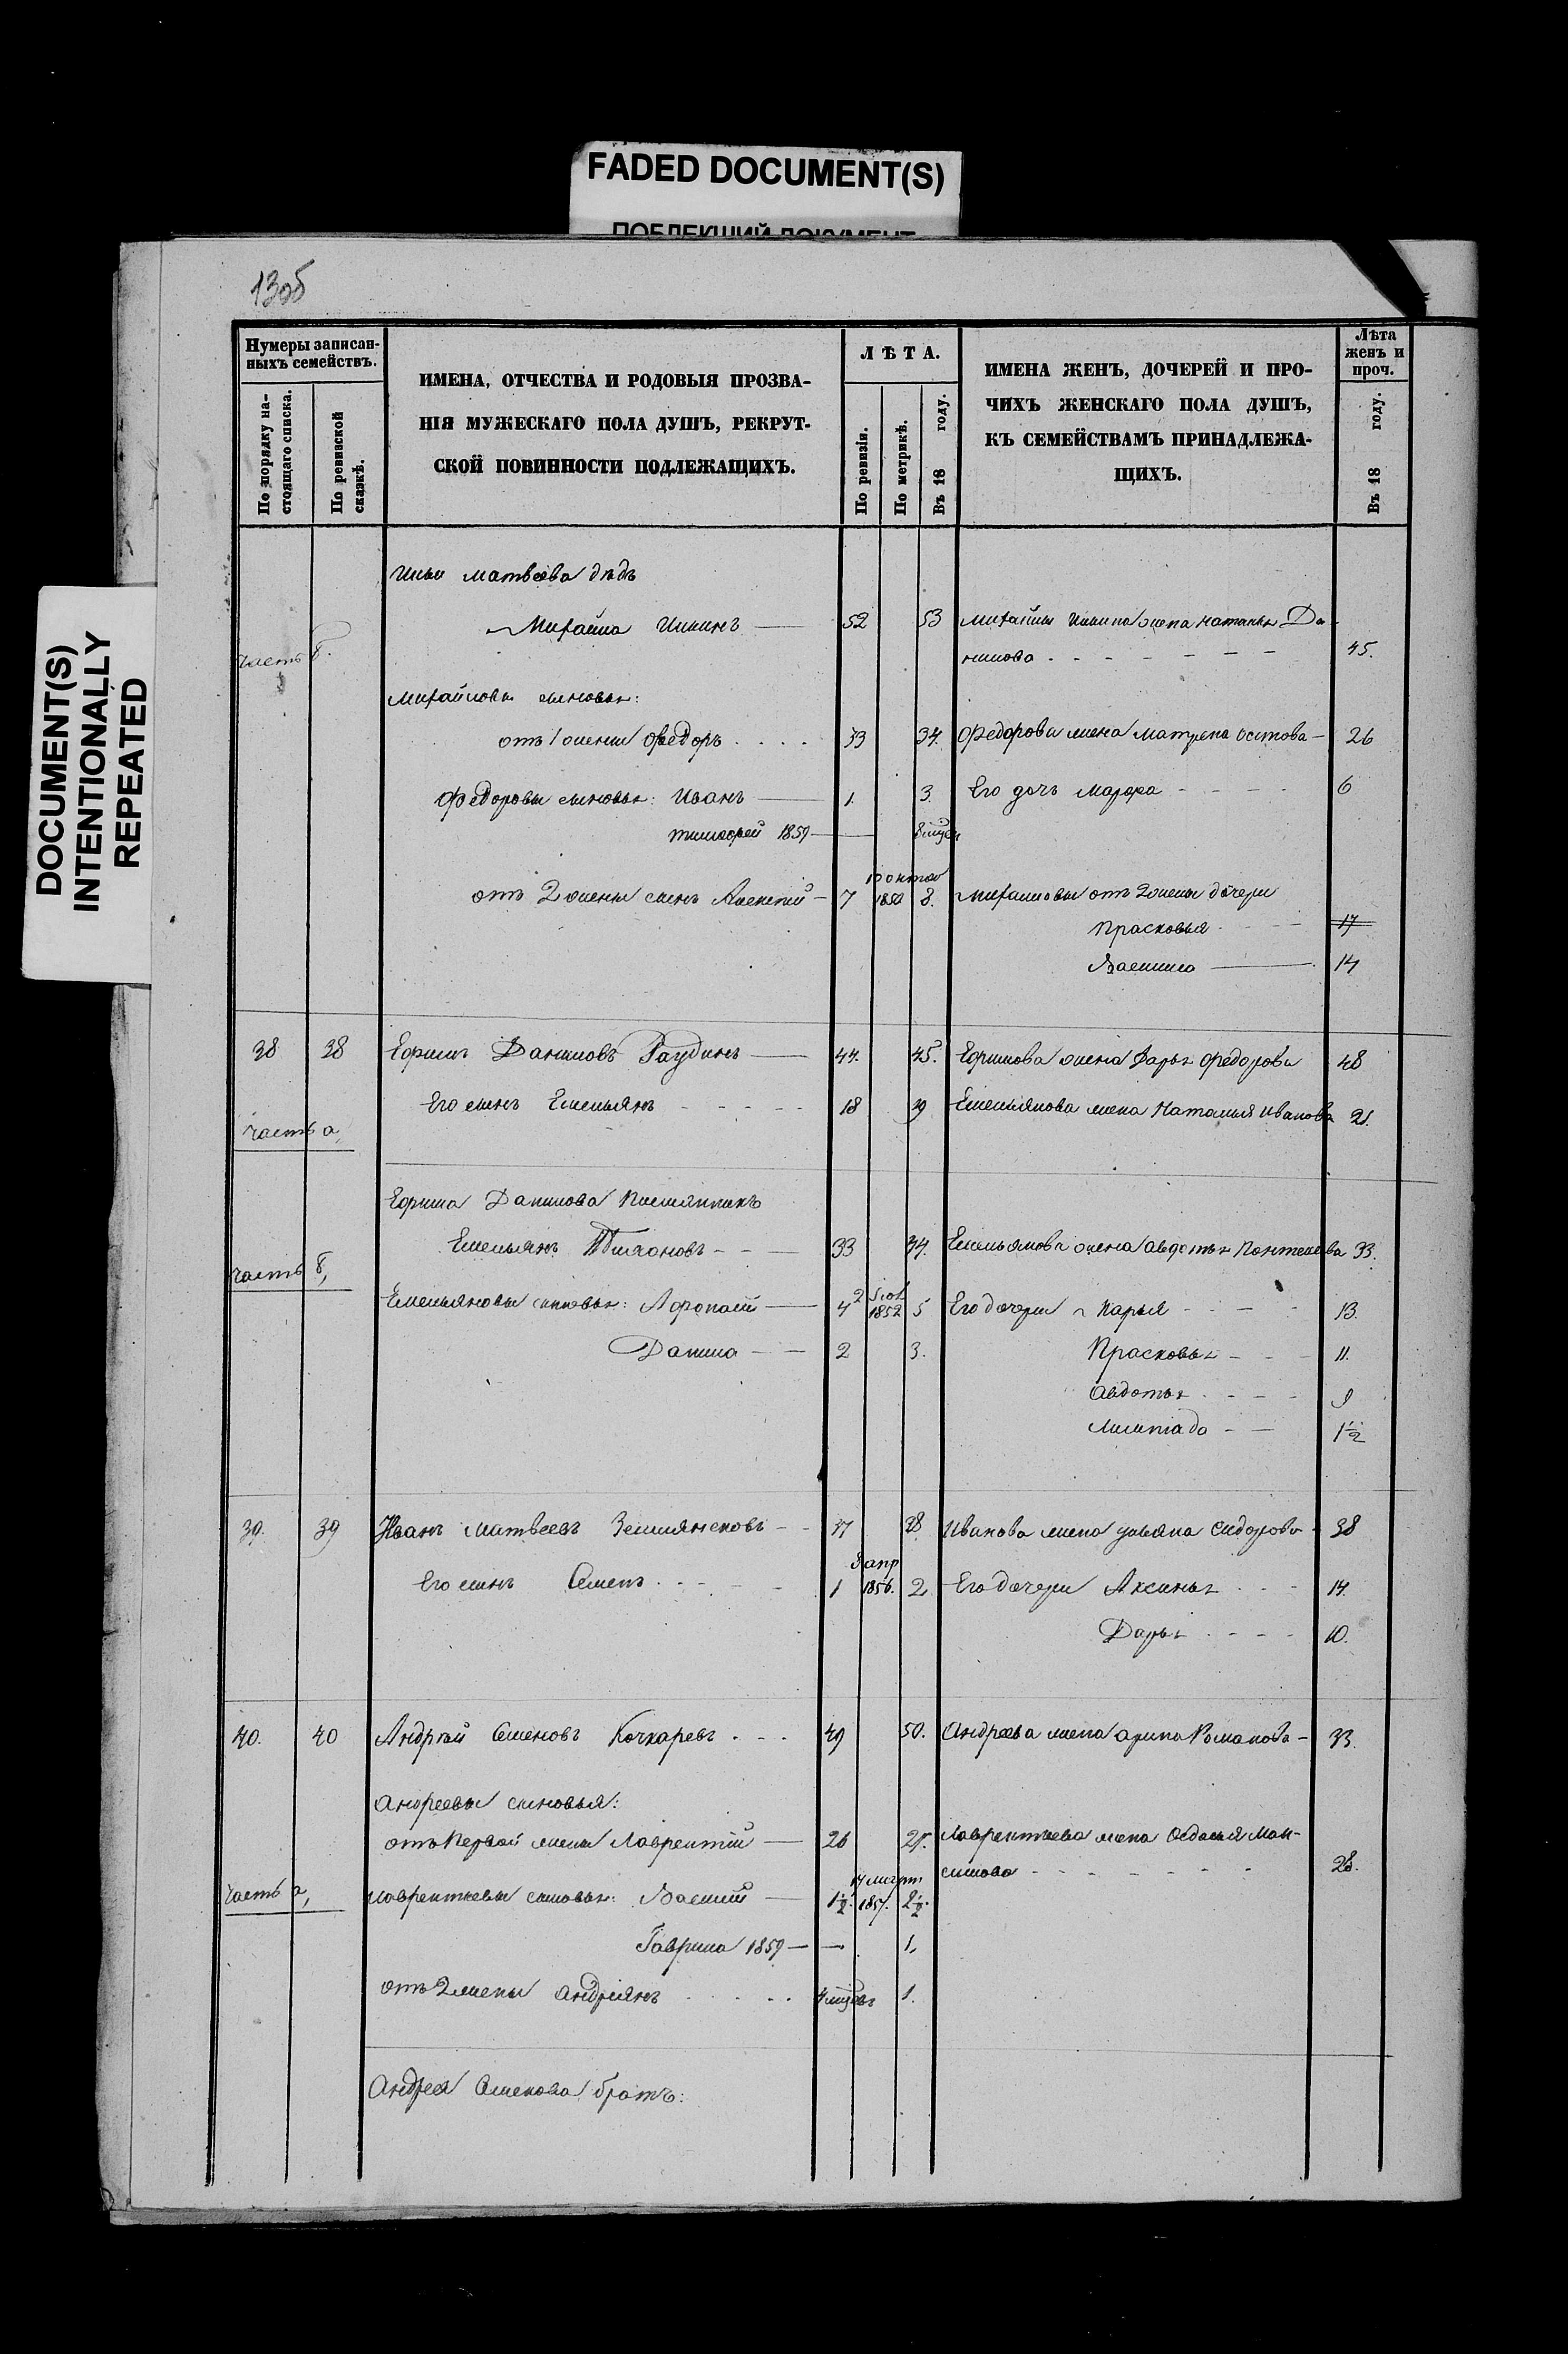 FADED DOCUMENT(S)
ПОБЛЕКШИЙ ДОКУМЕНТ
DOCUMENT(S)
INTENTIONALLY
REPEATED
13об
Нумеры записан-
ныхъ семействъ.
По порядку на-
стоящаго списка.
По ревизской
сказкѣ.
ИМЕНА, ОТЧЕСТВА И РОДОВЫЯ ПРОЗВА-
НІЯ МУЖЕСКАГО ПОЛА ДУШЪ, РЕКРУТ-
СКОЙ ПОВИННОСТИ ПОДЛЕЖАЩИХЪ.
ЛѢТА.
По ревизіи.
По метрикѣ.
Въ 18 году.
ИМЕНА ЖЕНЪ, ДОЧЕРЕЙ И ПРО-
ЧИХЪ ЖЕНСКАГО ПОЛА ДУШЪ,
КЪ СЕМЕЙСТВАМЪ ПРИНАДЛЕЖА-
ЩИХЪ.
Лѣта
женъ и
проч.
Въ 18 году.
Ильи Матвѣева дѣдъ
Михайла Ильинъ — 52 53 Михайлы Ильина жена Наталья Да-
часть б.
нилова 45.
Михайловы сыновья:
отъ 1 жены Федоръ 33 34. Федорова жена Матрена 26
Федоровы сыновья: Иванъ — 1. 3. Его дочь Марфа 6
Тимофей 1859 —
отъ 2 жены сынъ Алексѣй — 7 10 октяб 1850 8. Михайловы отъ 2 жены дочери
Прасковья 17
Василиса — 14
38 38 Ефимъ Даниловъ — 44. 45. Ефимова жена Дарья Федорова 48
Его сынъ Емельянъ 18 19 Емельянова жена Наталья Иванова 21.
часть а,
Ефима Данилова племянникъ
Емельянъ 33 34. Емельянова жена Авдотья Пантелеева 33.
часть б,
Емельяновы сыновья: Афонасій — 4 1852 5 Его дочери Марья 13.
Данила — 2 3. Прасковья 11.
Авдотья 9
1½
39. 39 Иванъ Матвеевъ Землянсковъ 37 38. Иванова жена Ульяна Сидорова 38
Его сынъ Семенъ 1 апр 1856. 2 Его дочери Аксинья 14.
Дарья 10.
40. 40 Андрѣй Семеновъ Кочкаревъ 49 50. Андреева жена Арина Романова — 33.
Андреевы сыновья:
отъ первой жены Лаврентій — 26 27. Лаврентьева жена Федосья Мак-
симова 28.
часть а,
Лаврентьевы сыновья: Василій — 1½. 1857. 2½.
Гаврила 1859 — — 1.
отъ 2 жены Андріянъ 1.
Андрея Семенова братъ: